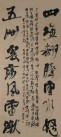 四海翻騰雲水怒
五洲震盪風雷激